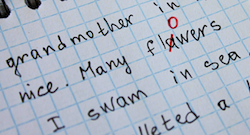 grandmother in
o
nice. Many flawers
I swam in sea
lleted a